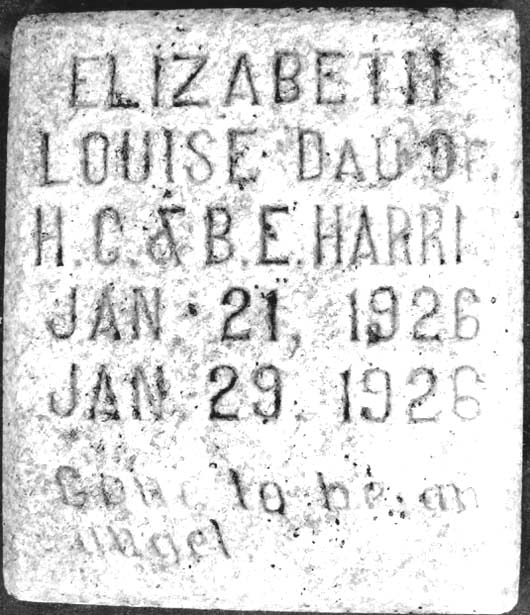 ELIZABETH
LOUISE DAU OF
H.C. & B.E. HARRI
JAN 21, 1926
JAN 29, 1926
Gone to be an
angel